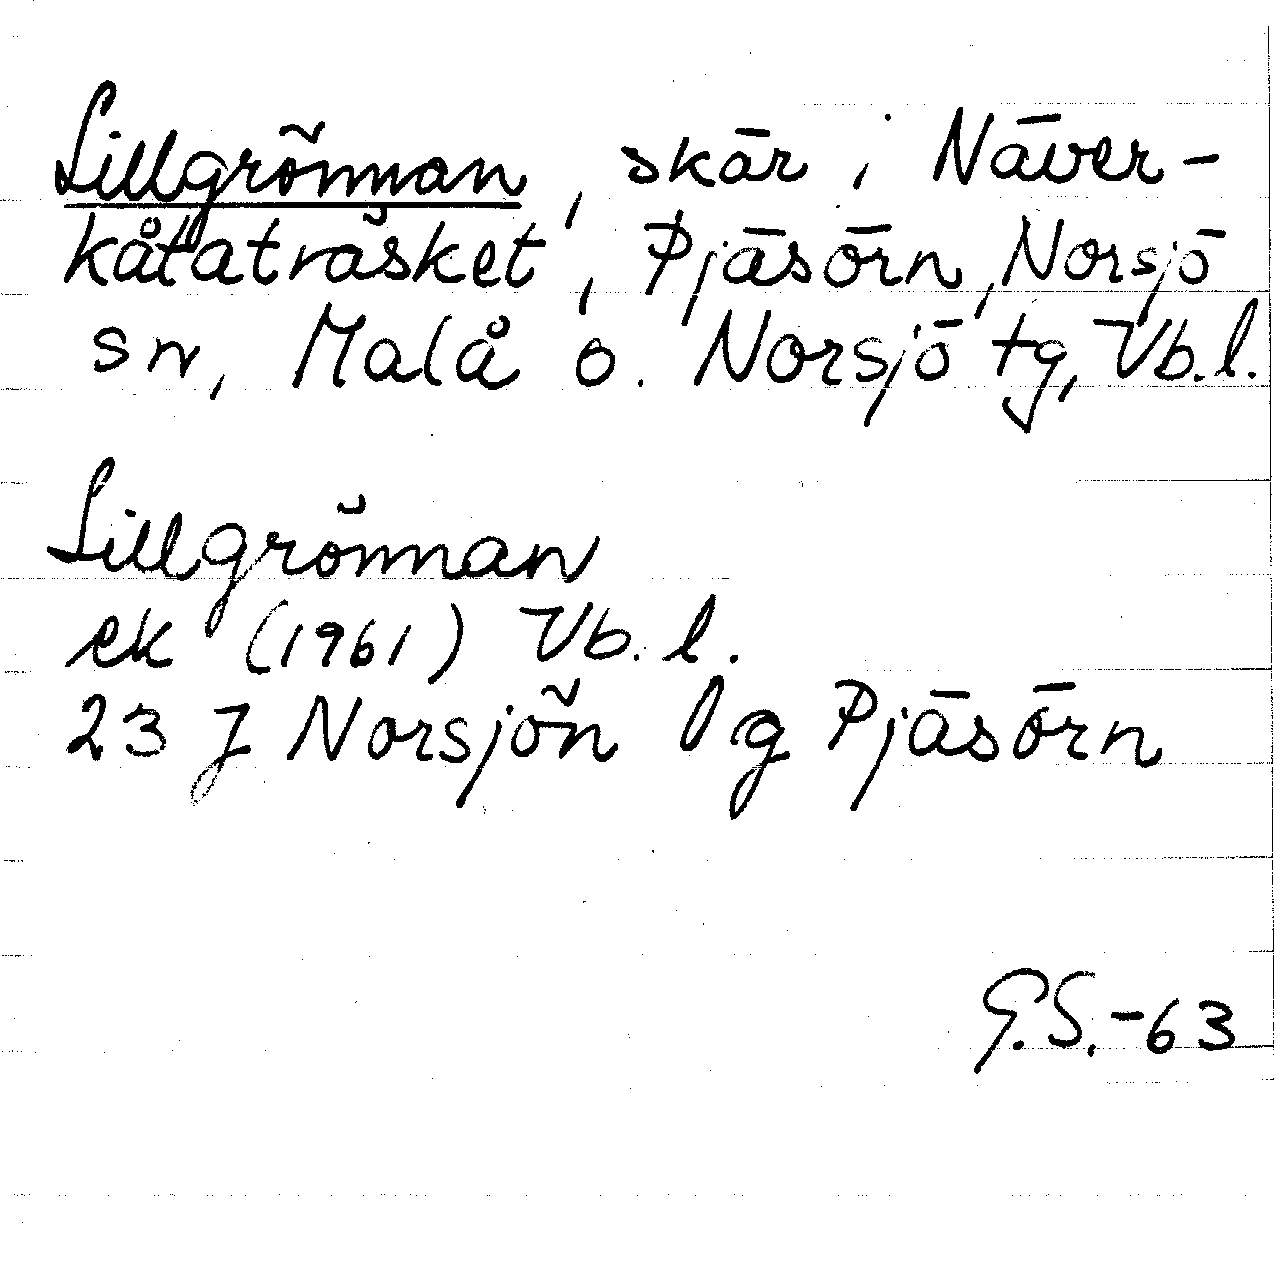 Lillgrönnan, skär i Näver-
kåtaträsket, Pjäsörn, Norsjö
sn, Malå o. Norsjö tg, Vb.l.
Lillgrönnan
ek (1961) Vb.l.
23 J Norsjön lg Pjäsörn
G.S.-63